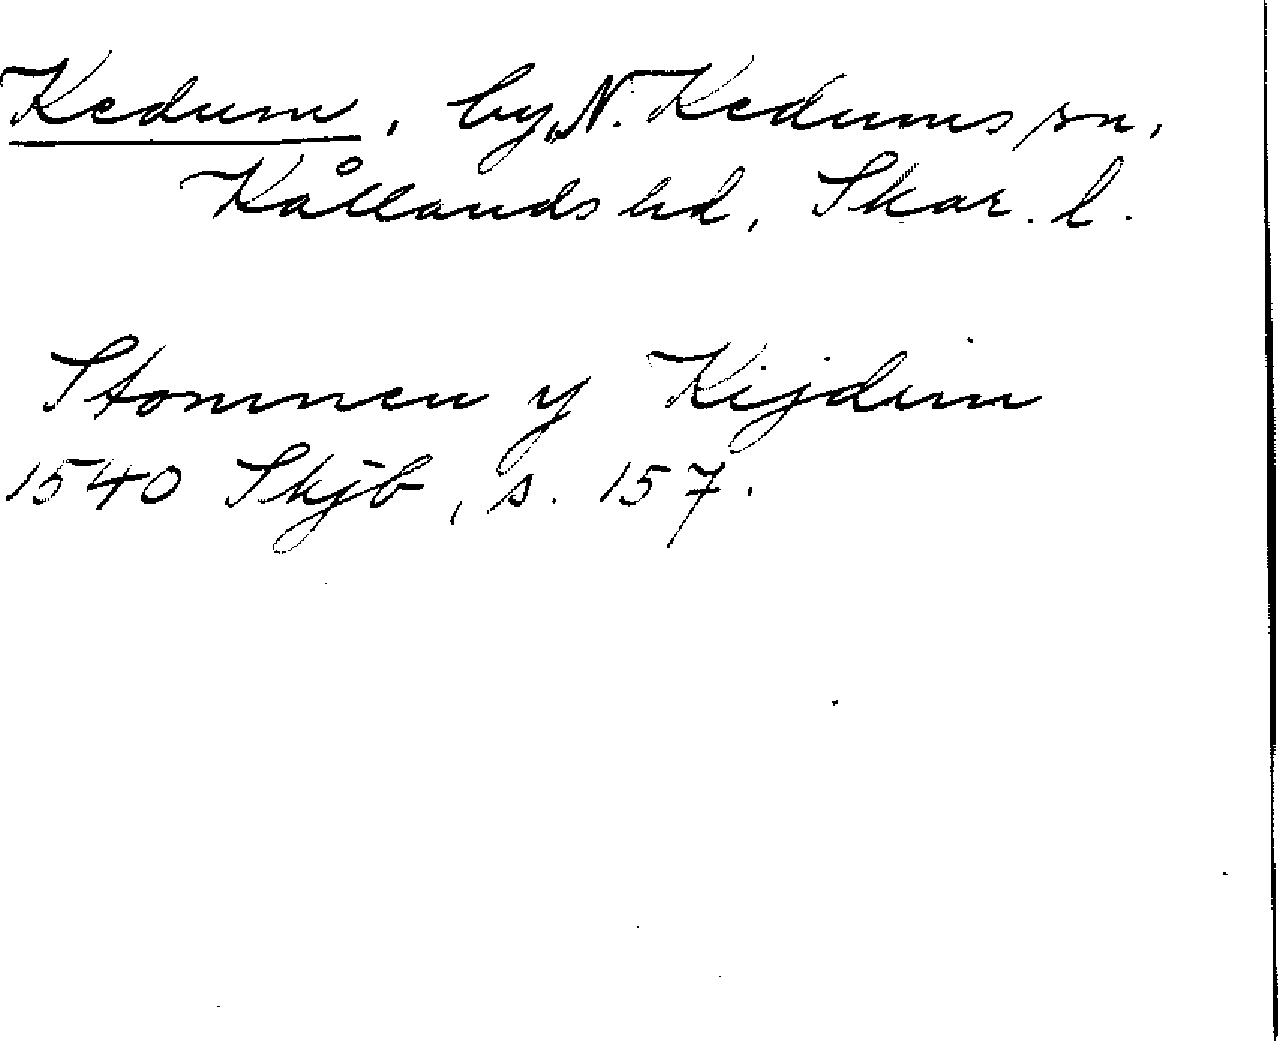 Kedum, by, N. Kedums sn,
Kållands hd, Skar. l.
Stommen y Kijdim
1540 Skjb, s. 157.